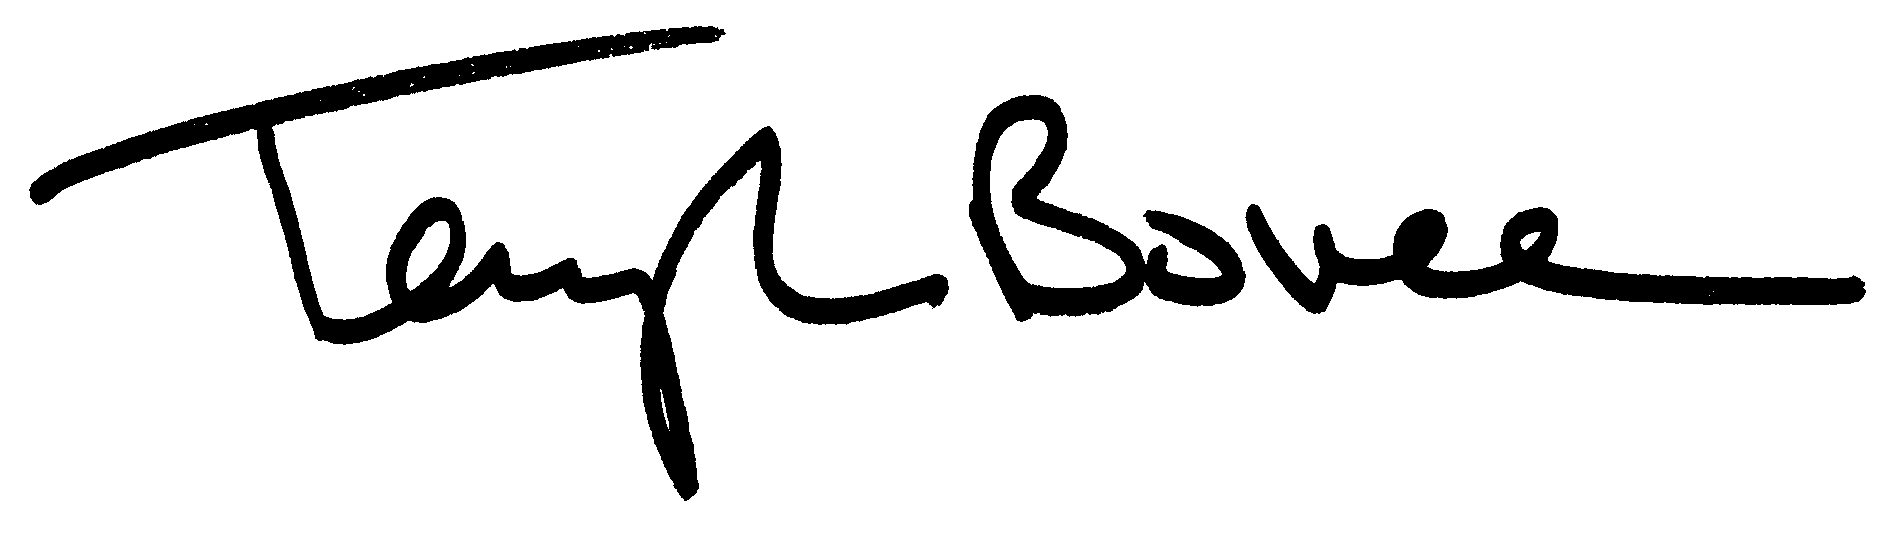 Terryl Bovee